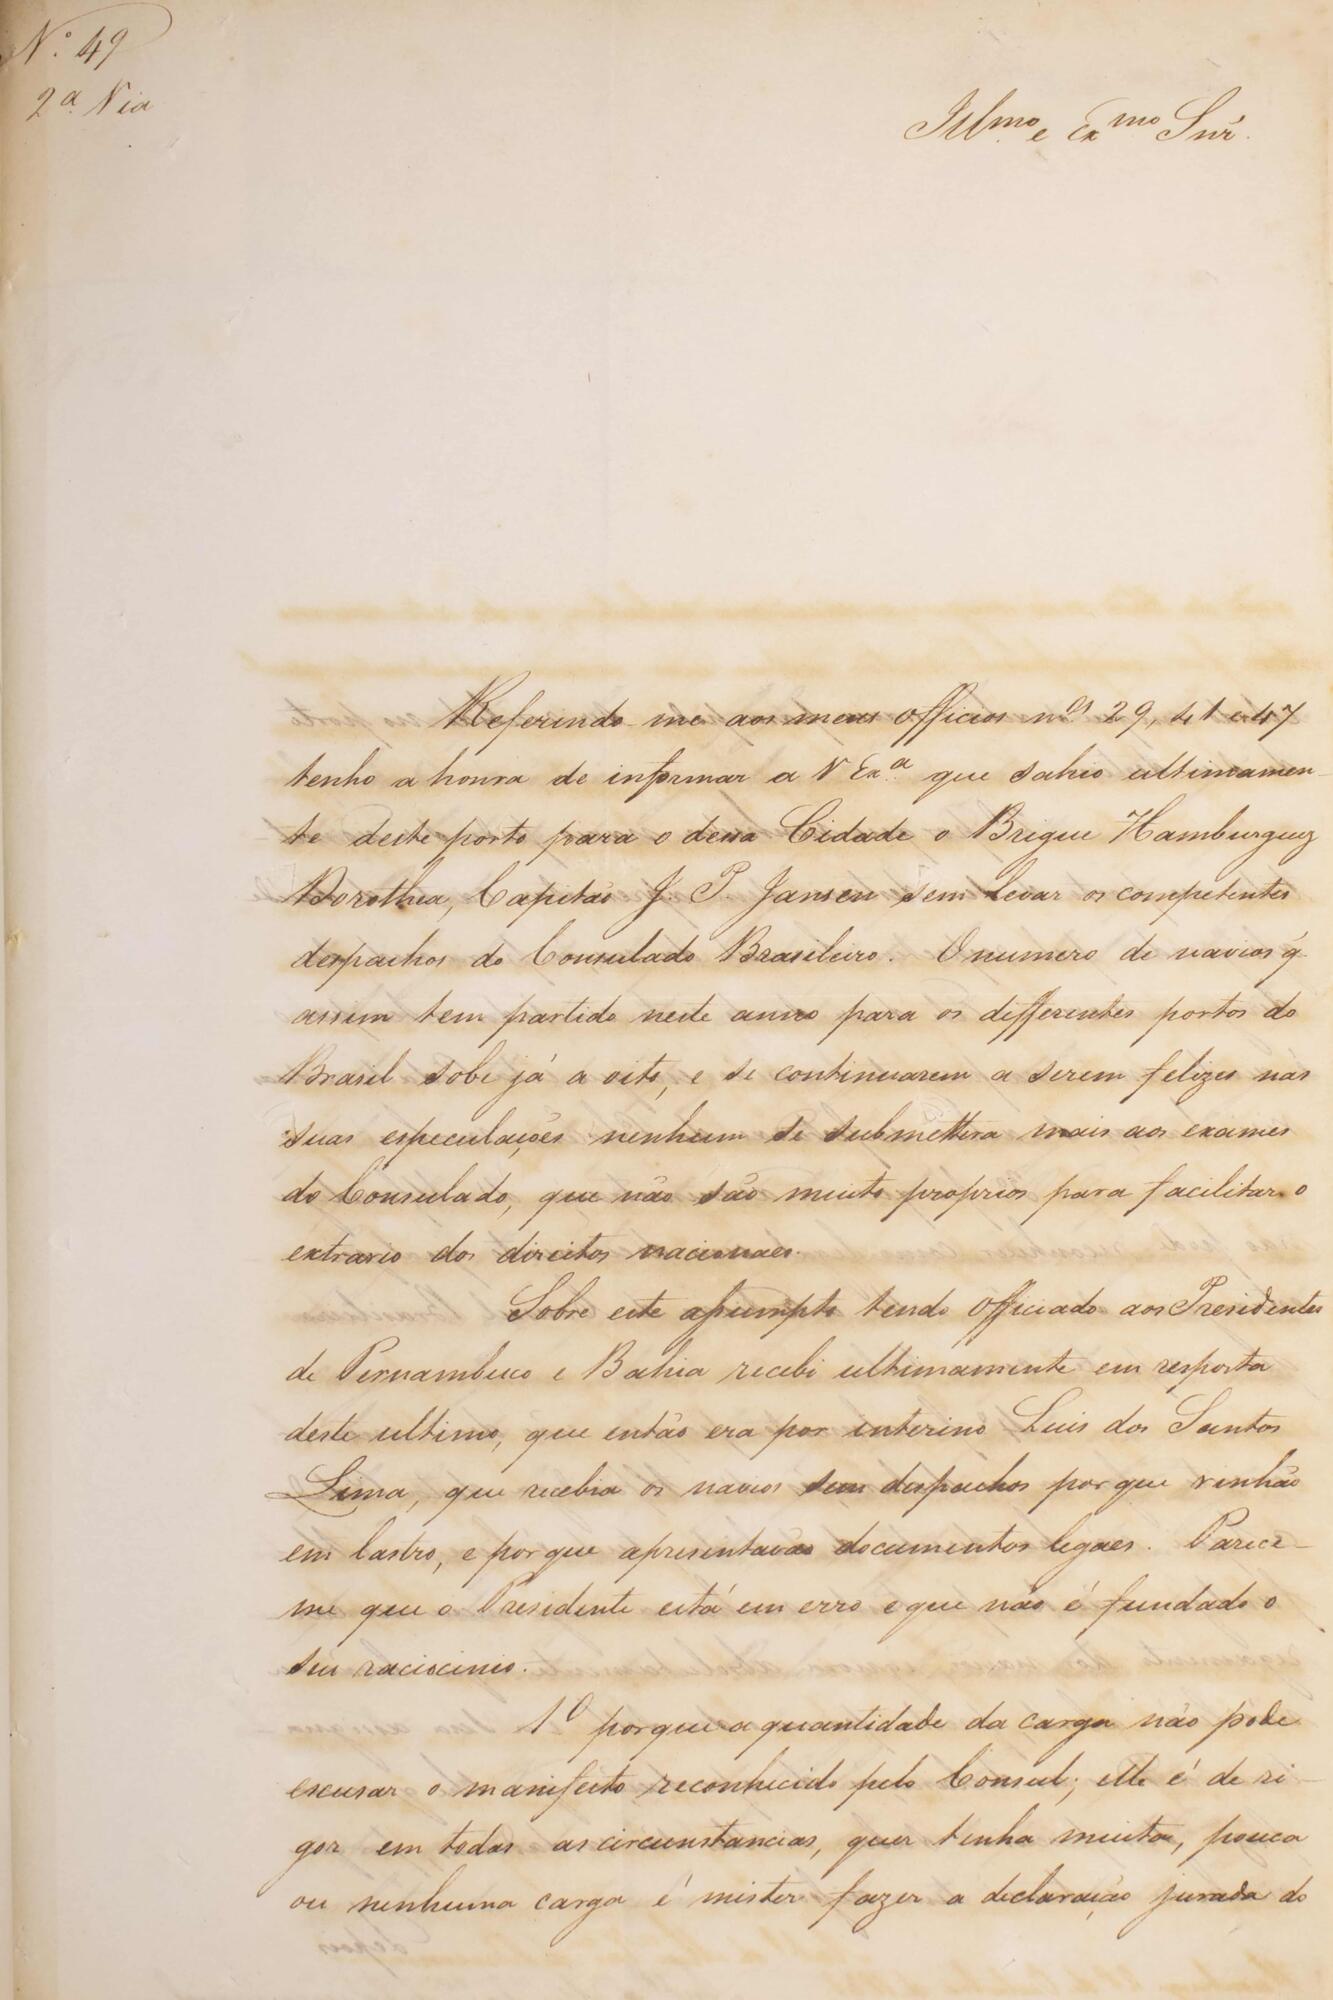 N.º 49
2ª Via
Illmo. e Exmo Snr.
Referindo me aos meus officios nos 29, 41 e 47
tenho a honra de informar a V Exa. que sahio ultimamen-
te deste porto para o dessa Cidade o Brigue Hamburguez
Dorothea, Capitão J. P. Jansen sem levar os competentes
despachos do Consulado Brasileiro. O numero de navios q̃
assim tem partido neste anno para os differentes portos do
Brasil sobe já a oito, e se continuarem a serem felizes nas
suas especulações nenhum se submetterá mais aos exames
do Consulado, que não são muito proprios para facilitar o
extravio dos direitos nacionaes.
Sobre este assumpto tendo officiado aos Presidentes
de Pernambuco e Bahia recebi ultimamente em resposta
deste ultimo, que então era por interino Luis dos Santos
Lima, que recebia os navios sem despachos porque vinhão
em lastro, e porque apresentavão documentos legaes. Parece-
me que o Presidente está em erro e que não é fundado o
seu raciocinio.
1º porque a quantidade da carga não pode
excusar o manifesto reconhecido pelo Consul; elle é de ri-
gor em todas as circunstancias, quer tenha muita, pouca
ou nenhuma carga é mister fazer a declaração jurada do